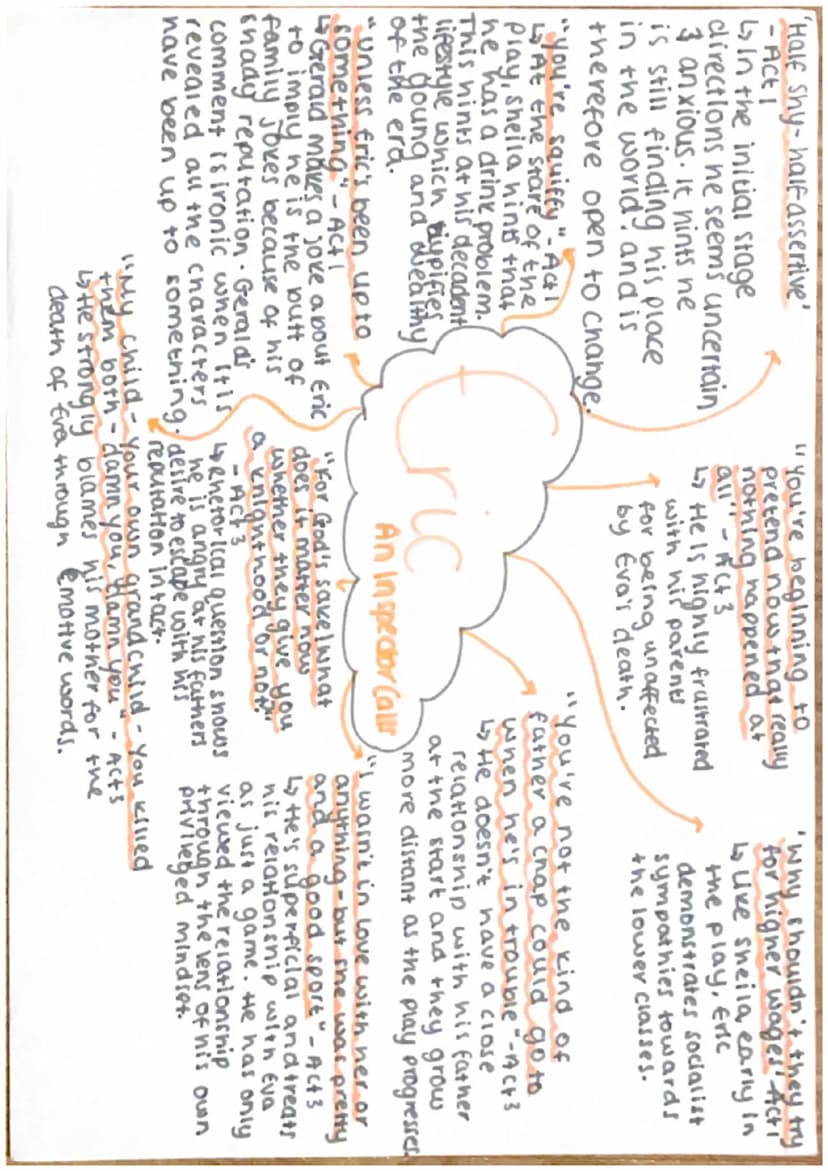 'Half shy - half assertive'
- Act 1
↳ In the initial stage
directions he seems uncertain
& anxious. It hints he
is still finding his place
in the world and is
therefore open to change.
"You're squiffy" - Act 1
↳ At the stare of the
play, sheila hints that
he has a drink problem.
This hints at his decadent
lifestyle which typifies
the young and wealthy
of the era.
"unless Eric's been up to
something" - Act 1
↳ Gerald makes a joke about Eric
to imply he is the butt of
family jokes because of his
shady reputation. Gerald's
comment is ironic when it is
revealed all the characters
have been up to something.
"You're beginning to
pretend now that really
nothing happened at
all" - Act 3
↳ He is highly frustrated
with his parents
for being unaffected
by Eva's death.
Eric
An Inspector Calls
"For God's sake! what
does it matter now
whether they give you
a knighthood or not"
- Act 3
↳ rhetorical question shows
he is angry at his fathers
desire to escape with his
reputation intact.
"My child - your own grandchild - you killed
them both - damn you, damn you" - Act 3
↳ He strongly blames his mother for the
death of Eva through emotive words.
'Why shouldn't they try
for higher wages' Act 1
↳ Like sheila, early in
the play, Eric
demonstrates socialist
sympathies towards
the lower classes.
"You're not the kind of
father a chap could go to
when he's in trouble" - Act 3
↳ He doesn't have a close
relationship with his father
at the start and they grow
more distant as the play progresses.
"I wasn't in love with her or
anything - but she was pretty
and a good sport" - Act 3
↳ He's superficial and treats
his relationship with Eva
as just a game. He has only
viewed the relationship
through the lens of his own
privileged mindset.